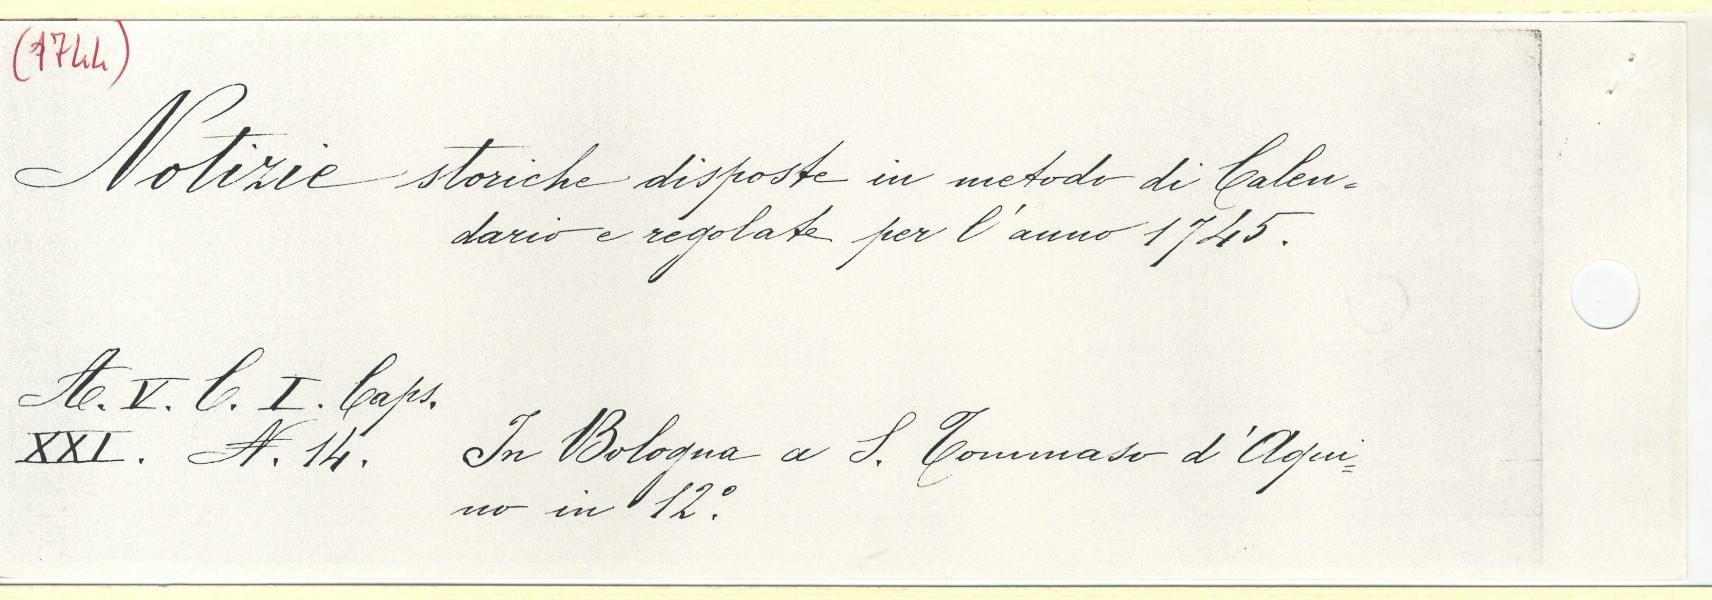 (1744)
Notizie storiche disposte in metodo di Calen=
dario e regolate per l'anno 1745.
A. V. C. I. Caps.
XXI. N. 14.
In Bologna a S. Tommaso d'Aqui=
no in 12º.